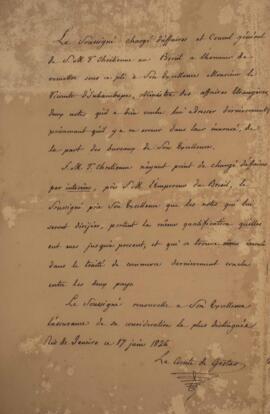 Le Soussigné chargé d'affaires et Consul général
de S. M. T. Chrétienne au Brésil a l'honneur de
remettre sous ce pli à Son Excellence Monsieur le
Vicomte d'Inhambupe, Ministre des affaires Etrangères,
deux notes qu'il a bien voulu lui adresser dernièrement,
présumant qu'il y a eu erreur dans leur énoncé, de
la part des bureaux de Son Excellence.
S. M. T. Chrétienne n'ayant point de chargé d'affaires
par interim, près S. M. l'Empereur du Brésil, le
Soussigné prie Son Excellence que les notes qui lui
seront dirigées, portent la même qualification qu'elles
ont eue jusqu'à présent, et qui se trouve énoncée
dans le traité de commerce dernièrement conclu
entre les deux pays.
Le Soussigné renouvelle à Son Excellence
l'assurance de sa considération la plus distinguée
Rio de Janeiro ce 17 juin 1826
Le Comte de Gestas